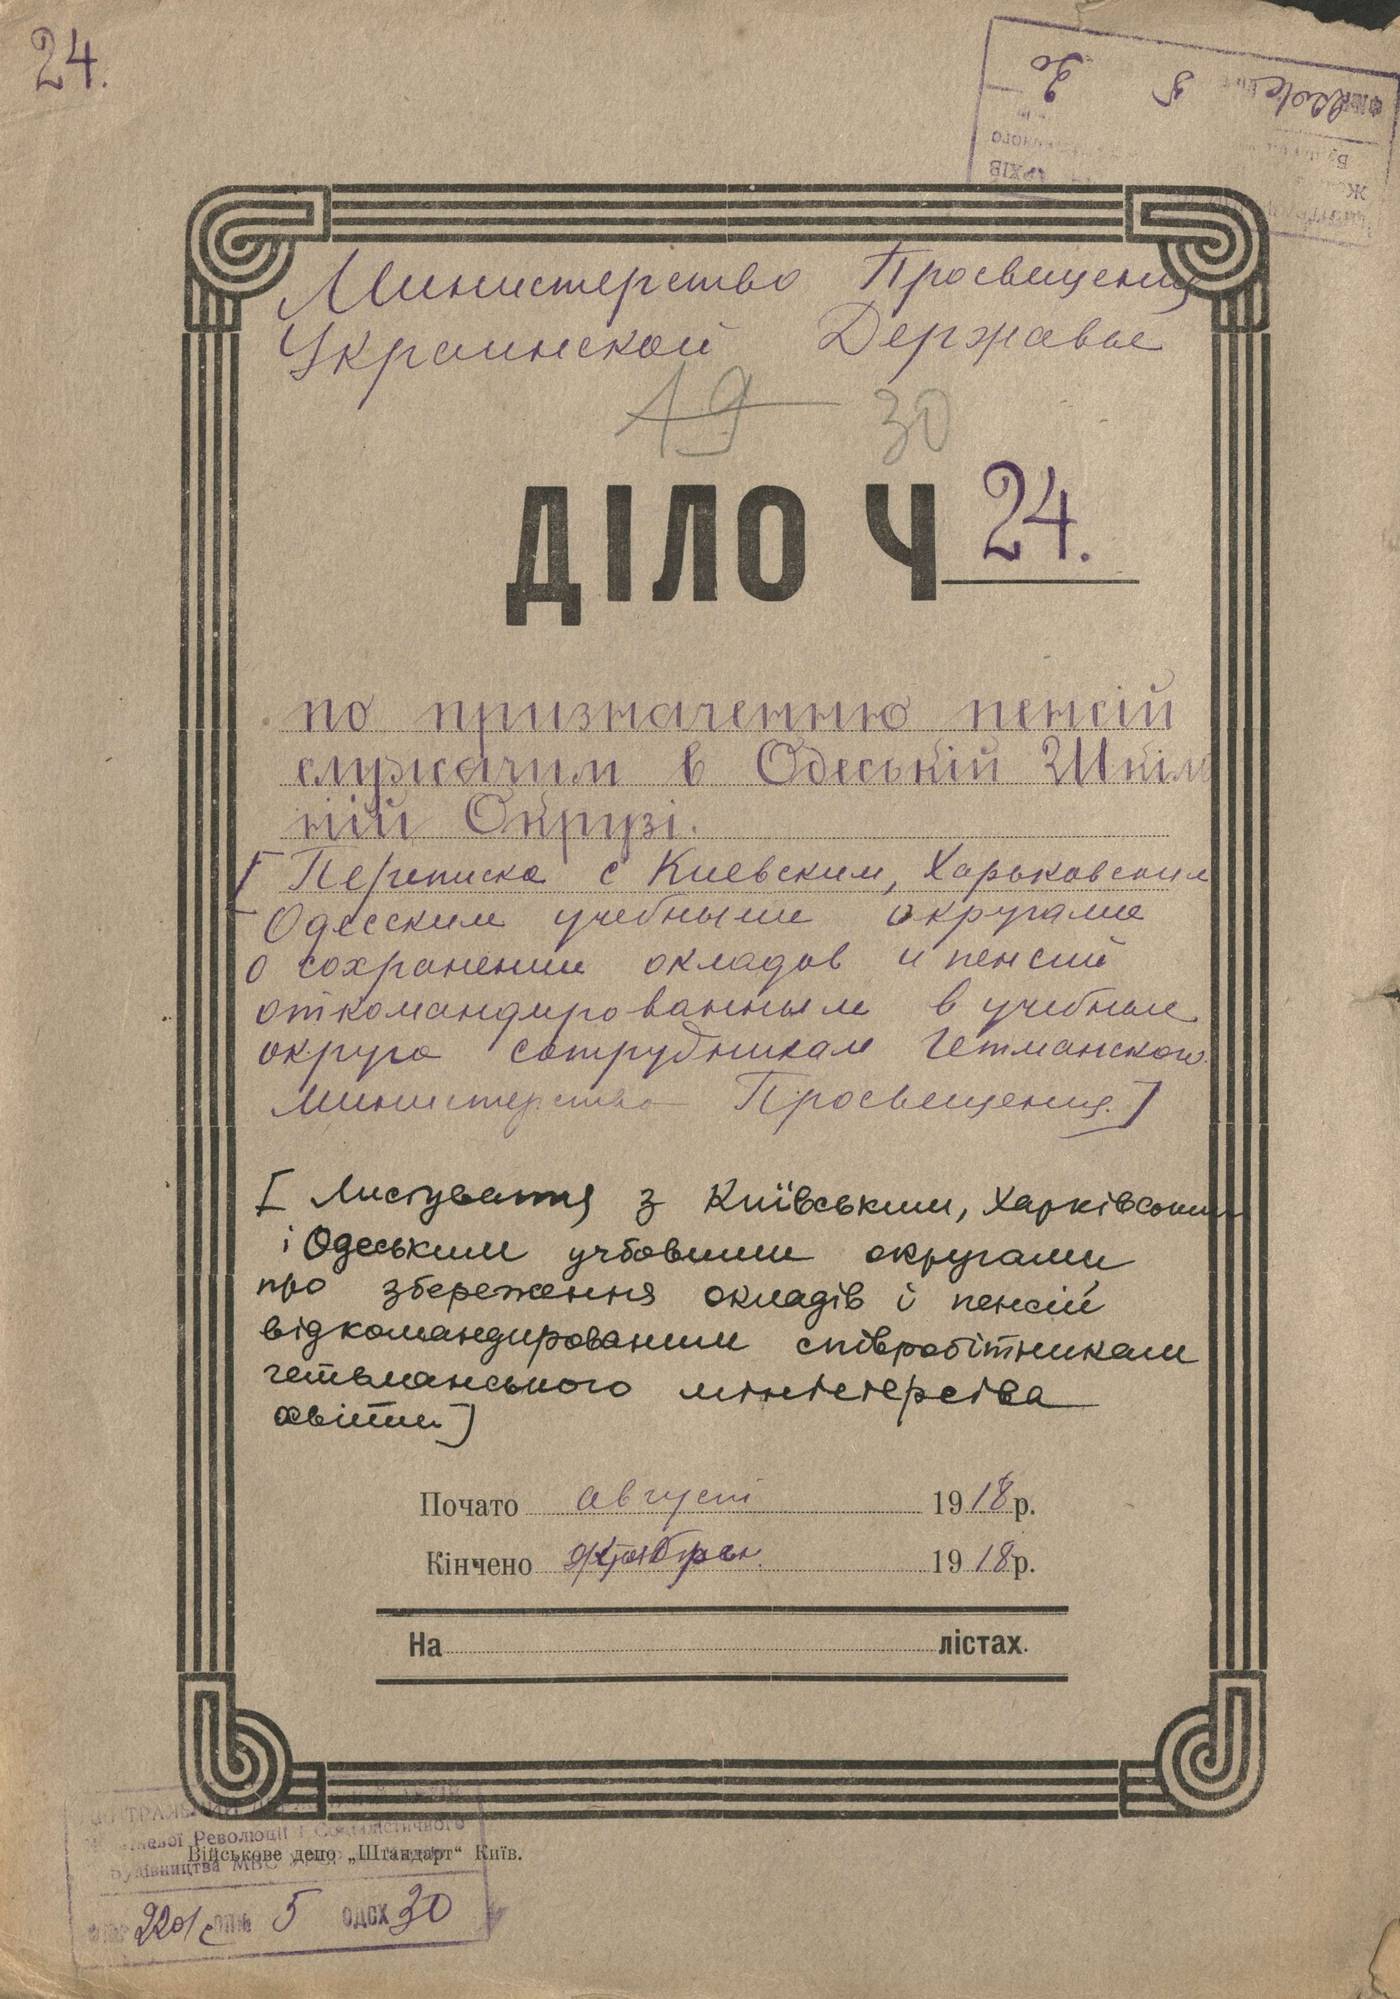 24.
Министерство Просвещения
Украинской Державы
19 30
ДІЛО Ч 24.
по призначенню пенсій
служачим в Одеській Шкіль
ній Окрузі.
[Переписка с Киевским, Харьковским
Одесским учебными округами
о сохранении окладов и пенсий
откомандированным в учебные
округа сотрудникам Гетманского
министерства Просвещения.]
[Листування з Київським, Харківським
і Одеським учбовими округами
про збереження окладів і пенсій
відкомандированим співробітникам
гетьманського міністерства
освіти]
Почато август 1918 р.
Кінчено октябрь. 1918 р.
На лістах.
ЦЕНТРАЛЬНИЙ ДЕРЖАВНИЙ АРХІВ
Жовтневої Революції і Соціалістичного
Будівництва МВС УРСР
Військове депо „Штандарт“ Київ.
ФОНД 2201с ОП№ 5 ОДСХ 30